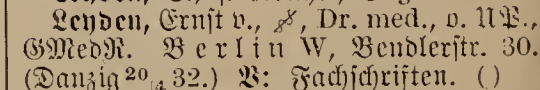 Leyden, Ernst v., ⚔, Dr. med., o. UP.,
GMedR. Berlin W, Bendlerstr. 30.
(Danzig 20/4 32.) V: Fachschriften. ()